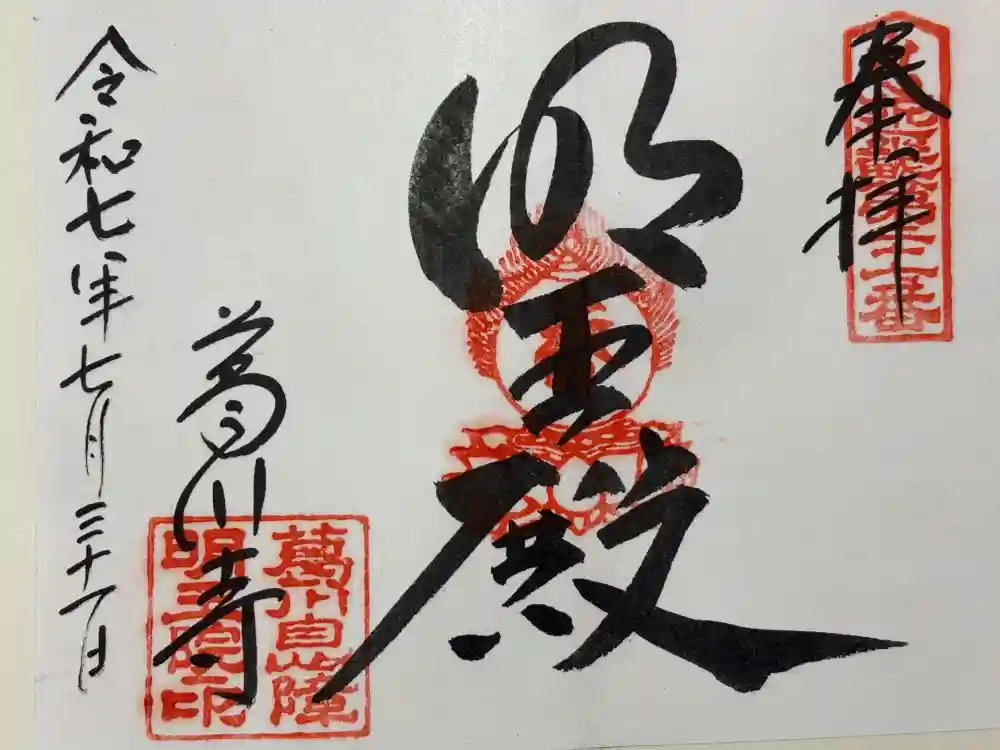 奉拝
明王殿
葛川寺
令和七年七月三十一日
葛川息障
明王院之印